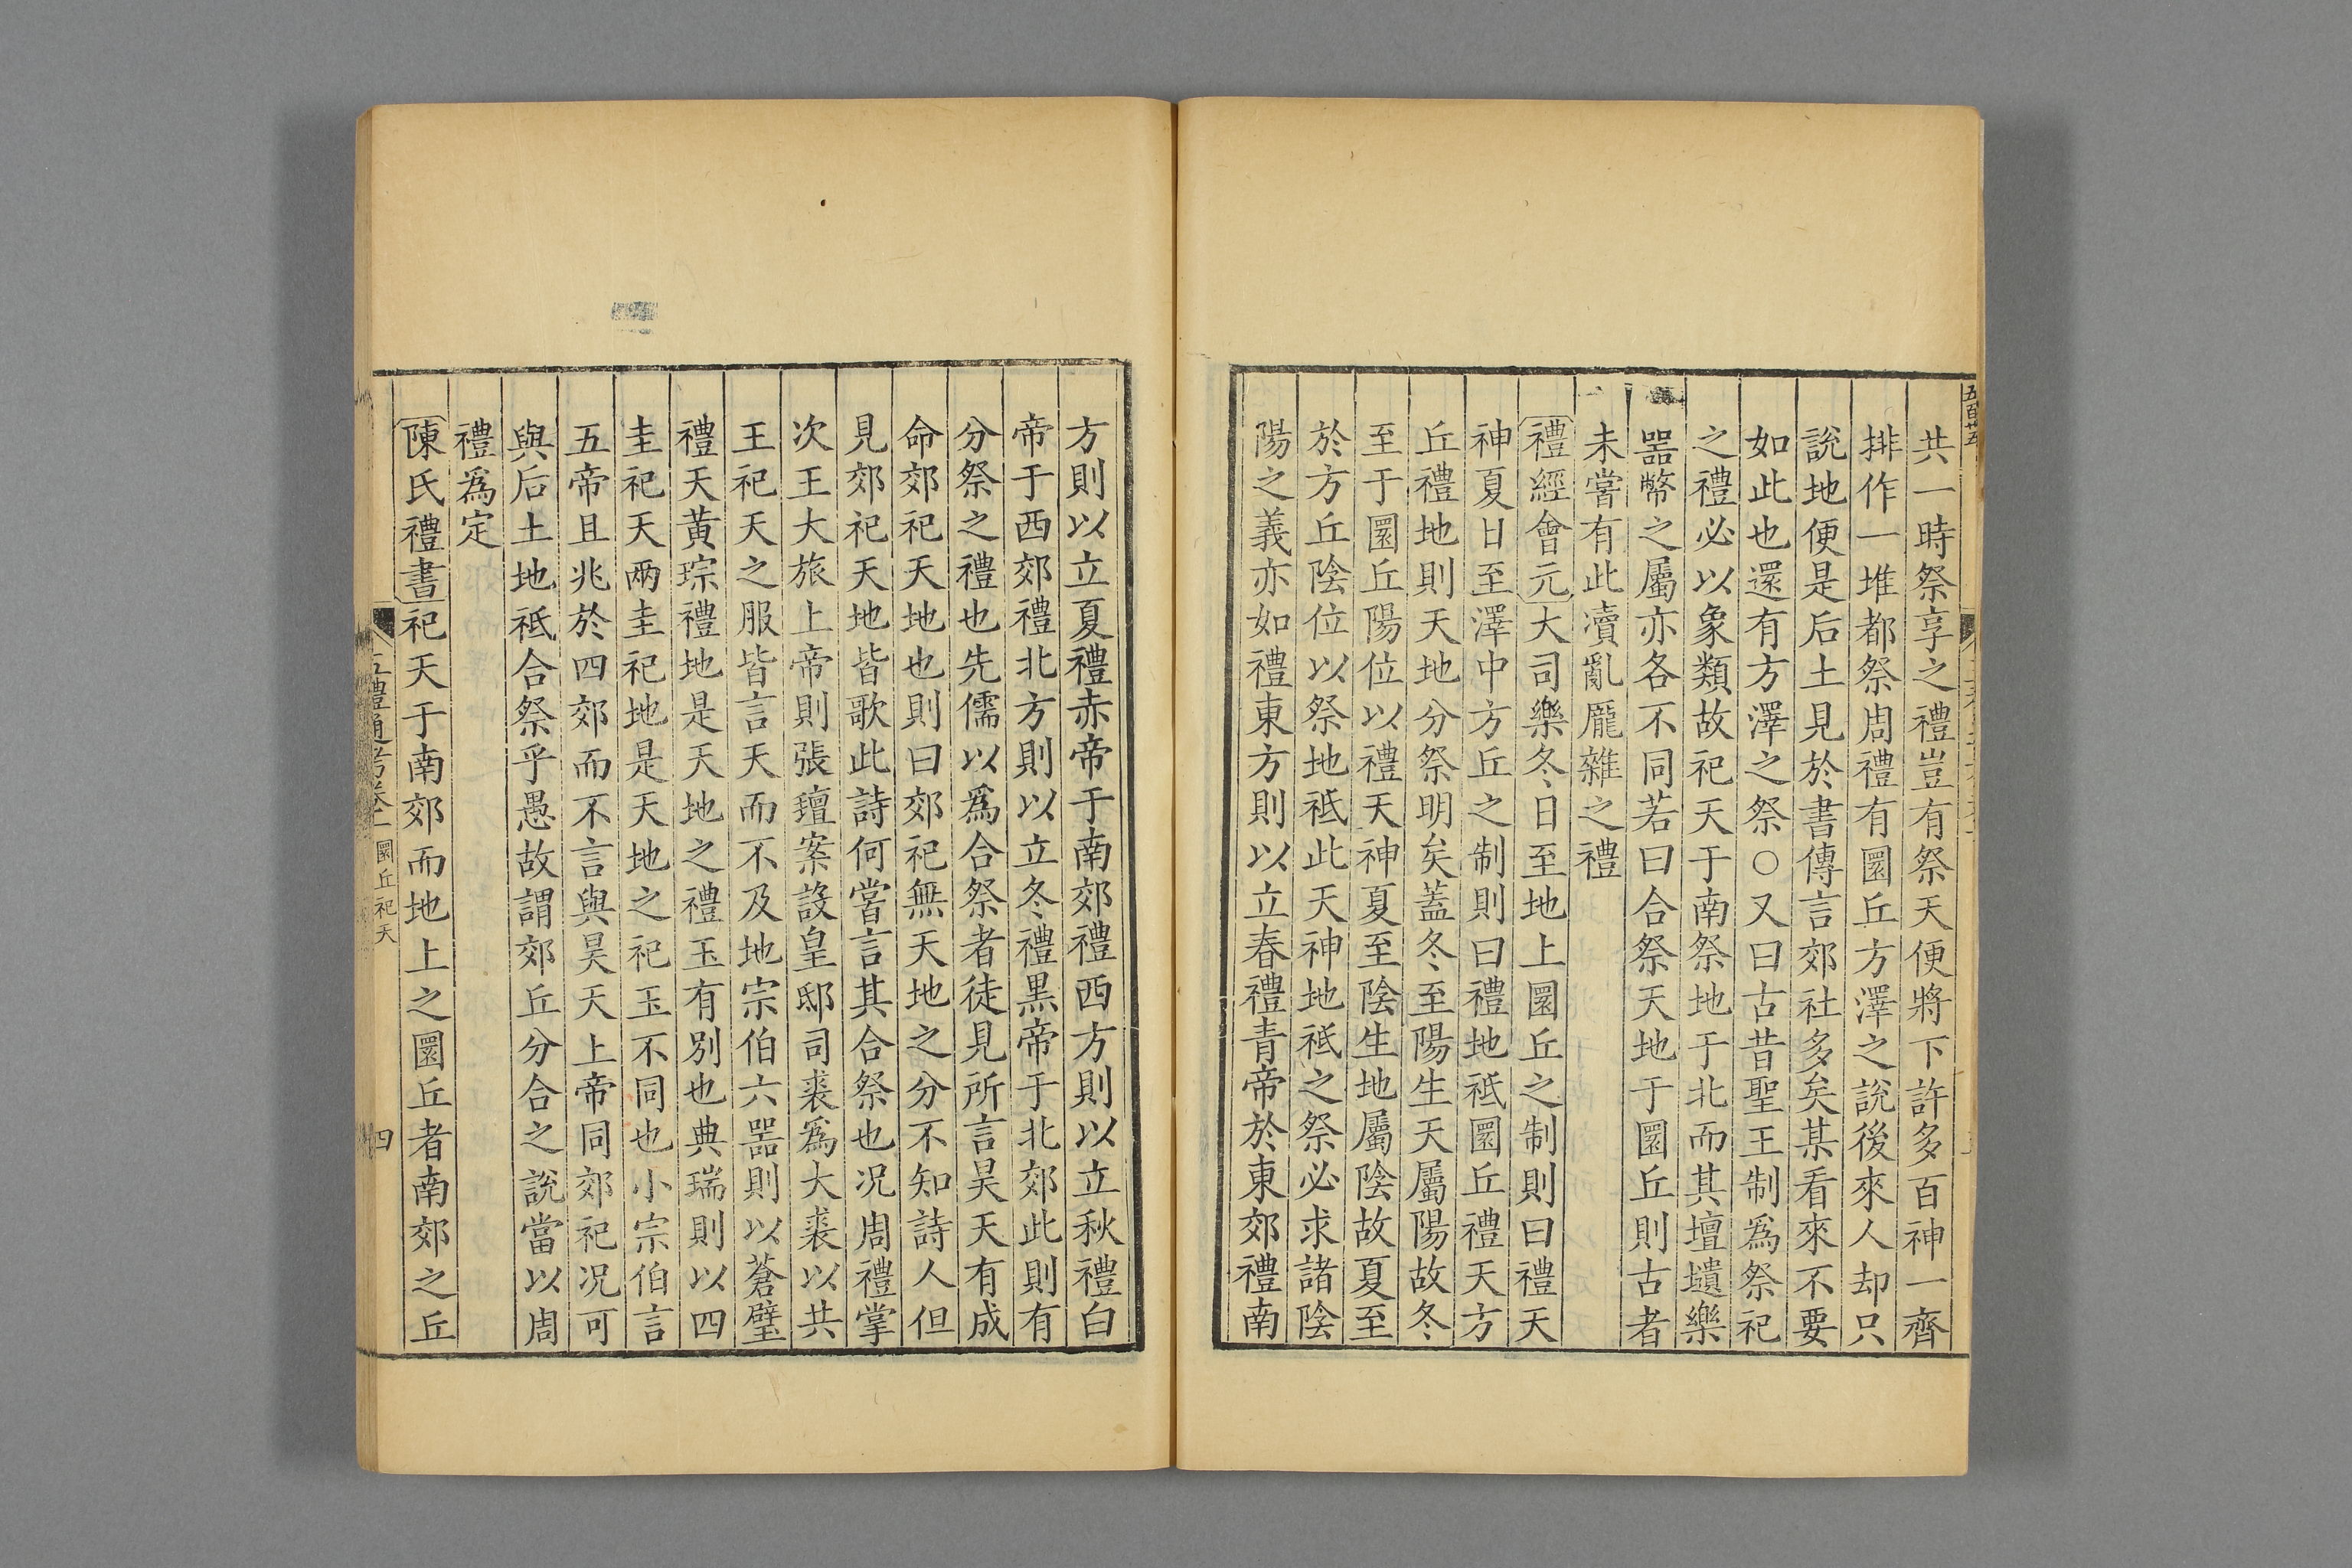 五百廿五
共一時祭享之禮豈有祭天便將下許多百神一齊
排作一堆都祭周禮有圜丘方澤之說後來人却只
說地便是后土見於書傳言郊社多矣某看來不要
如此也還有方澤之祭○又曰古昔聖王制為祭祀
之禮必以象類故祀天于南祭地于北而其壇壝樂
器幣之屬亦各不同若曰合祭天地于圜丘則古者
未嘗有此瀆亂厖雜之禮
禮經會元大司樂冬日至地上圜丘之制則曰禮天
神夏日至澤中方丘之制則曰禮地祗圜丘禮天方
丘禮地則天地分祭明矣蓋冬至陽生天屬陽故冬
至于圜丘陽位以禮天神夏至陰生地屬陰故夏至
於方丘陰位以祭地祗此天神地祗之祭必求諸陰
陽之義亦如禮東方則以立春禮青帝於東郊禮南
方則以立夏禮赤帝于南郊禮西方則以立秋禮白
帝于西郊禮北方則以立冬禮黑帝于北郊此則有
分祭之禮也先儒以爲合祭者徒見所言昊天有成
命郊祀天地也則曰郊祀無天地之分不知詩人但
見郊祀天地皆歌此詩何嘗言其合祭也况周禮掌
次王大旅上帝則張氊案設皇邸司裘爲大裘以共
王祀天之服皆言天而不及地宗伯六器則以蒼璧
禮天黃琮禮地是天地之禮玉有別也典瑞則以四
圭祀天兩圭祀地是天地之祀玉不同也小宗伯言
五帝且兆於四郊而不言與昊天上帝同郊祀况可
與后土地祗合祭乎愚故謂郊丘分合之說當以周
禮爲定
陳氏禮書祀天于南郊而地上之圜丘者南郊之丘
五禮通考卷一 圜丘祀天 四